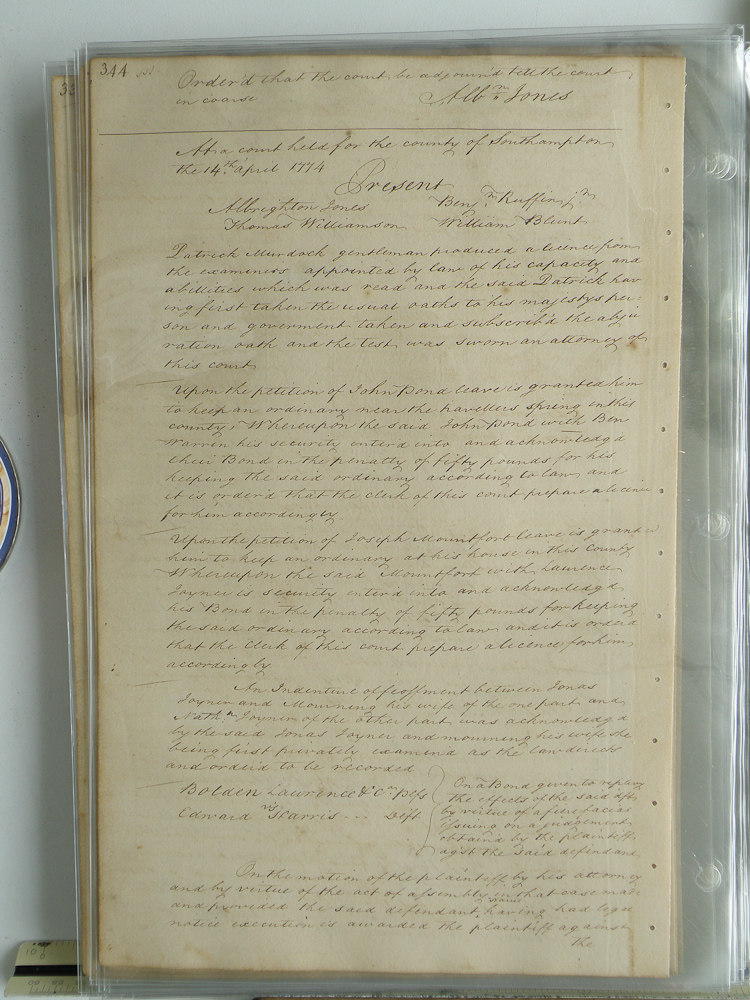 344
33
Order'd that the court be adjourn'd till the court
in coarse Alb.n Jones
At a court held for the county of Southampton
the 14th april 1774
Present
Albrighton Jones Benj.n Ruffin j.n
Thomas Williamson William Blunt
Patrick Murdock gentleman produced a licence from
the examiners appointed by law of his capacity and
abillities which was read and the said Patrick hav
ing first taken the usual oaths to his majestys per
son and goverment taken and subscrib'd the abju
ration oath and the test was sworn an attorney of
this court
Upon the petition of John Pond leave is granted him
to keep an ordinary near the travellers spring in this
county Whereupon the said John Pond with Ben
Warren his security enterd into and acknowledgd
their Bond in the penalty of fifty pounds for his
keeping the said ordinary according to law and
it is order'd that the clerk of this court prepare a licence
for him accordingly
Upon the petition of Joseph Mountfort leave is granted
him to keep an ordinary at his house in this County
Whereupon the said Mountfort with Laurence
Joyner is security enterd into and acknowledgd
his Bond in the penalty of fifty pounds for keeping
the said ordinary according to law and it is orderd
that the Clerk of this court prepare a licence for him
accordingly
An Indenture of feoffment between Jonas
Joyner and Mourning his wife of the one part and
Nath.n Joyner of the other part was acknowledgd
by the said Jonas Joyner and mourning his wife she
being first privately examind as the law directs
and orderd to be recorded
Bolden Laurence & Cº plfs
vs
Edward Harris ... Deft
On a Bond given to replevy
the effects of the said deft
by virtue of a fierefacias
issuing on a judgement
obtaind by the plaintiffs
agst the said defendant
On the motion of the plaintiff by his attorney
and by virtue of the act of assembly in that case made
and provided the said defendant having had legal
notice execution is awarded the plaintiff against
the